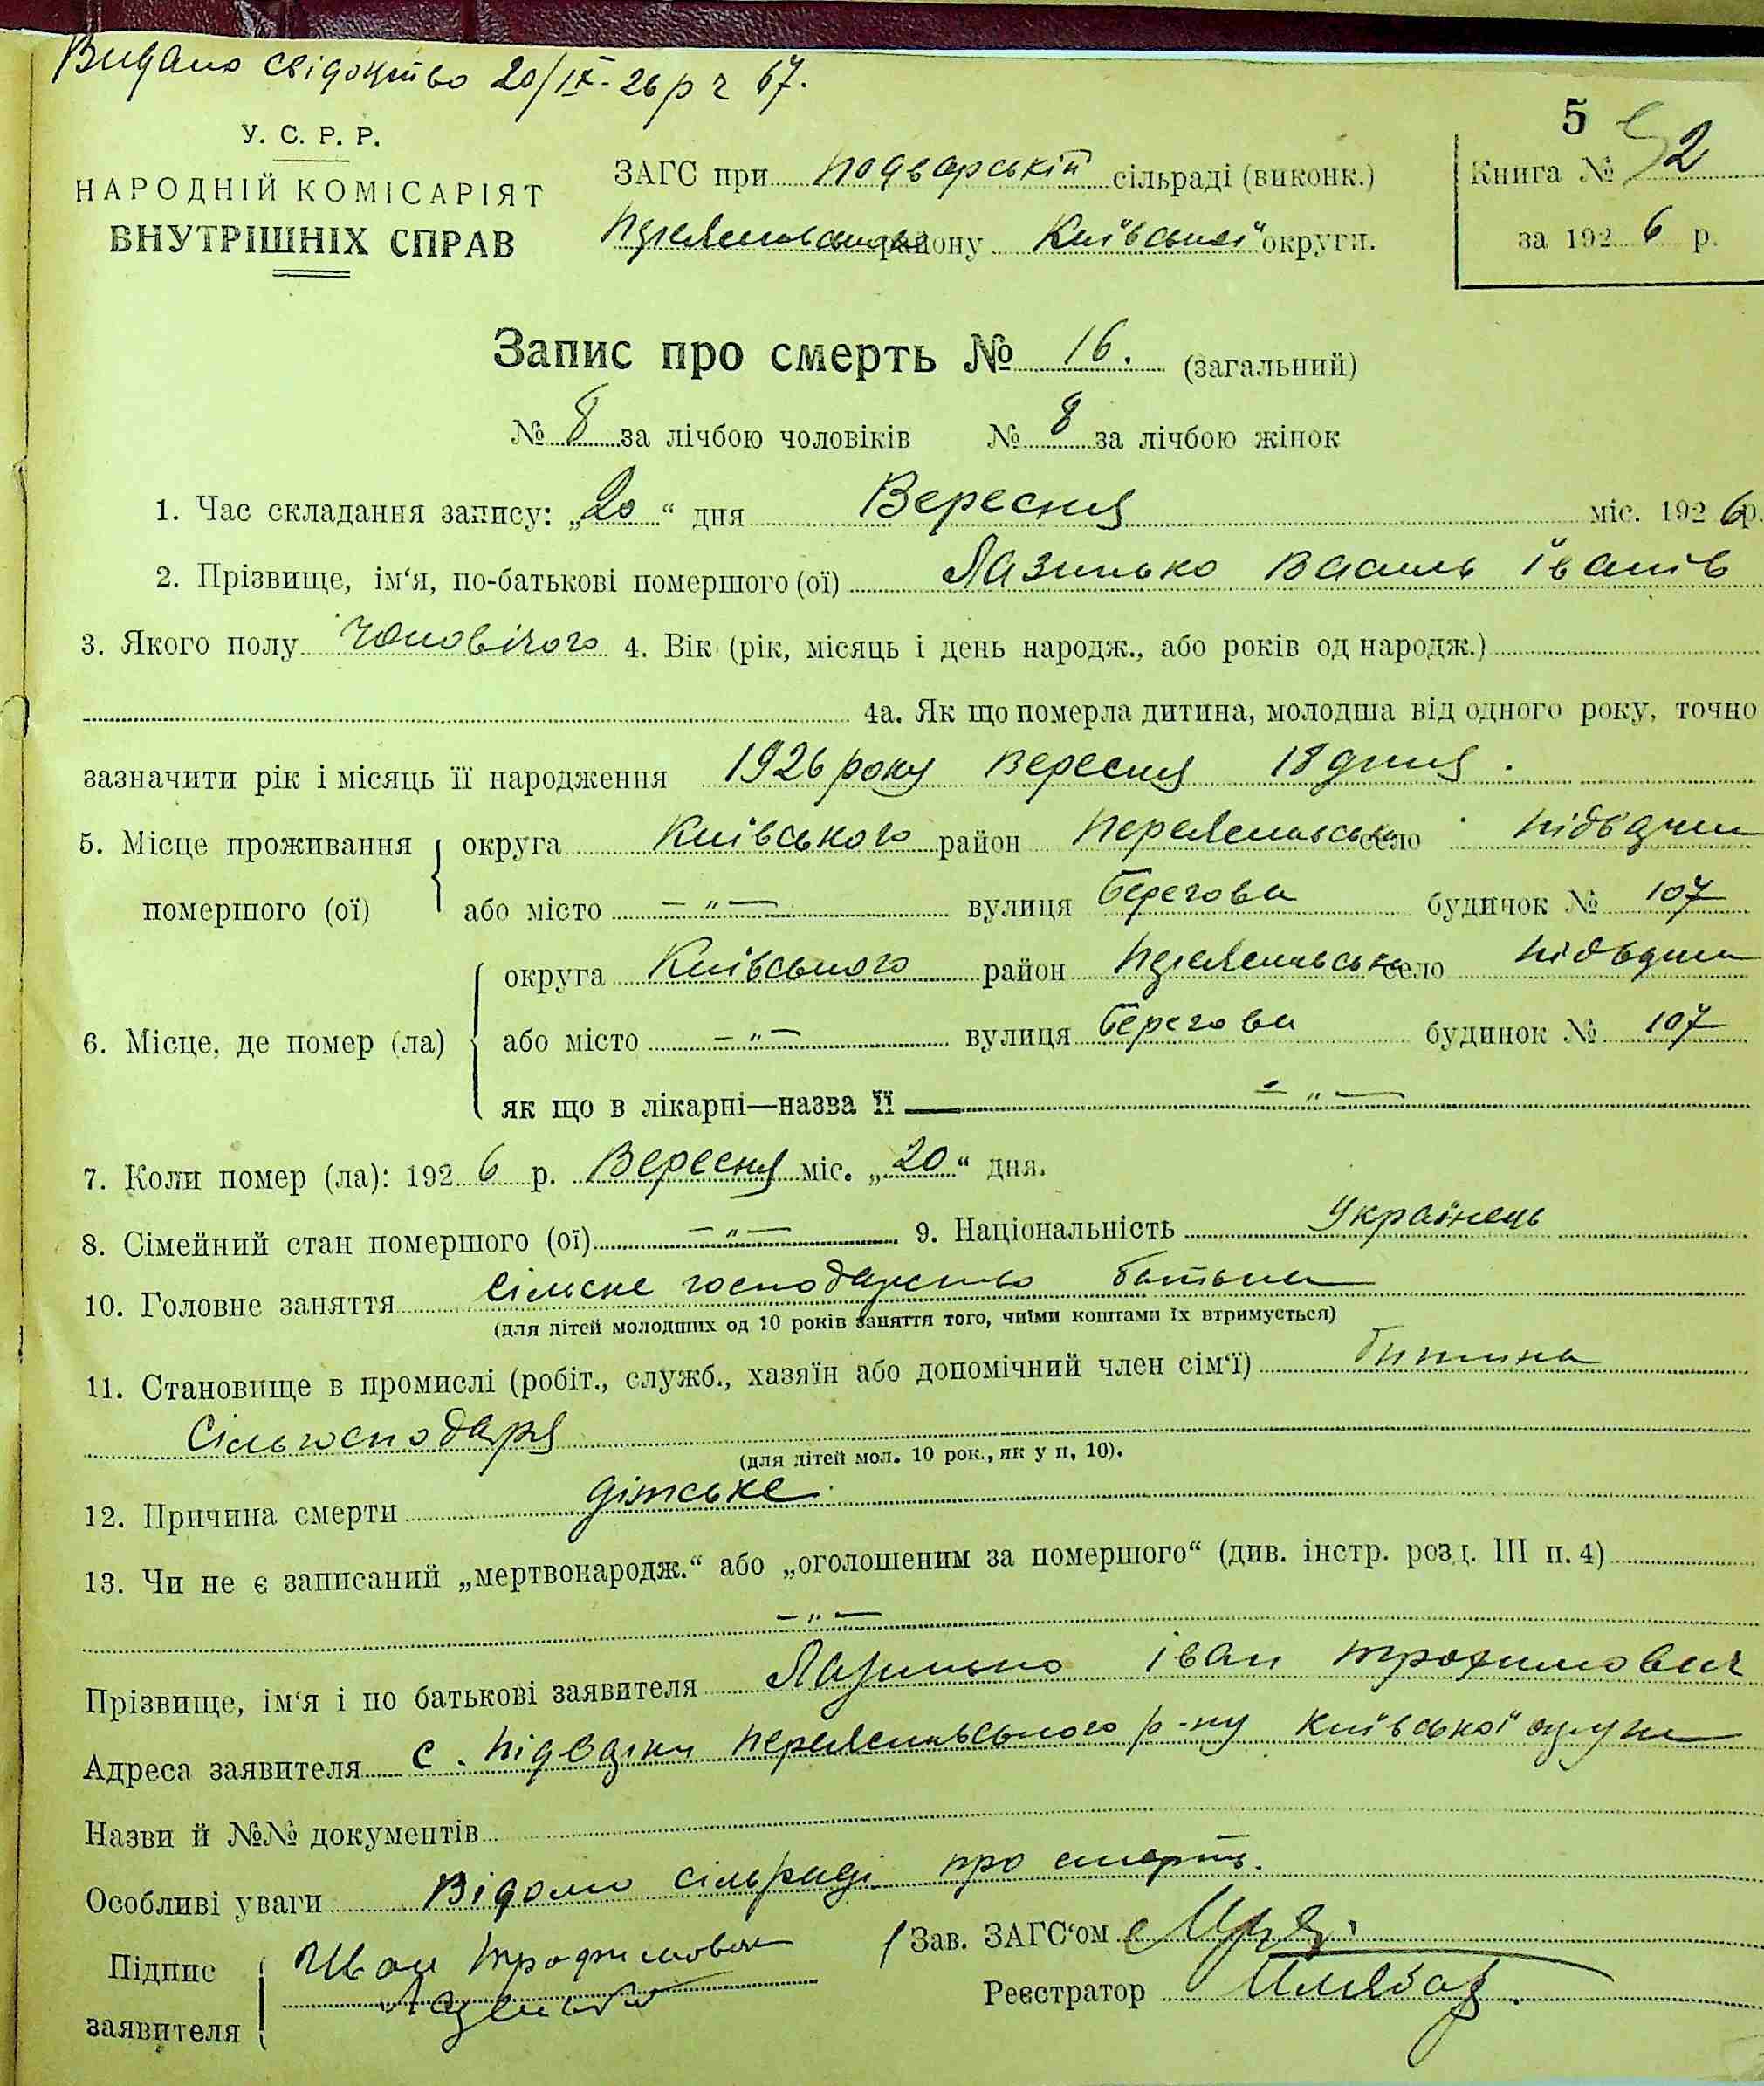 Видано свідоцтво 20/IX-26 р ч 67.
5
У. С. Р. Р.
НАРОДНІЙ КОМІСАРІЯТ
ВНУТРІШНІХ СПРАВ
ЗАГС при Подварській сільраді (виконк.)
району Київської округи.
Книга № 2
за 1926 р.
Запис про смерть № 16. (загальний)
№ 8 за лічбою чоловіків № 8 за лічбою жінок
1. Час складання запису: „20“ дня Вересня міс. 1926 р.
2. Прізвище, ім‘я, по-батькові помершого (ої) Лазинько Василь Іванів
3. Якого полу Чоловічого 4. Вік (рік, місяць і день народж., або років од народж.)
4а. Як що померла дитина, молодша від одного року, точно
зазначити рік і місяць її народження 1926 року Вересня 18 дня.
5. Місце проживання округа Київського район Переяславське село
помершого (ої) або місто — „ — вулиця Берегова будинок № 107
округа Київського район Переяславське село
6. Місце, де помер (ла) або місто — „ — вулиця Берегова будинок № 107
як що в лікарні—назва її — „ —
7. Коли помер (ла): 1926 р. Вересня міс. „20“ дня.
8. Сімейний стан помершого (ої) — „ — 9. Національність Українець
10. Головне заняття Сільске господарство батька
(для дітей молодших од 10 років заняття того, чиїми коштами їх втримується)
11. Становище в промислі (робіт., служб., хазяїн або допомічний член сім‘ї) дитина
Сільгосподаря
(для дітей мол. 10 рок., як у п, 10).
12. Причина смерти дітське
13. Чи не є записаний „мертвонародж.“ або „оголошеним за помершого“ (див. інстр. розд. III п. 4)
— „ —
Прізвище, ім‘я і по батькові заявителя Лазинько Іван Трохимович
Адреса заявителя с. Переяславського р-ну Київської округи
Назви й №№ документів
Особливі уваги Відомо сільраді про смерть.
Підпис Иван Трофимович
заявителя Лазенько
Зав. ЗАГС‘ом
Реєстратор